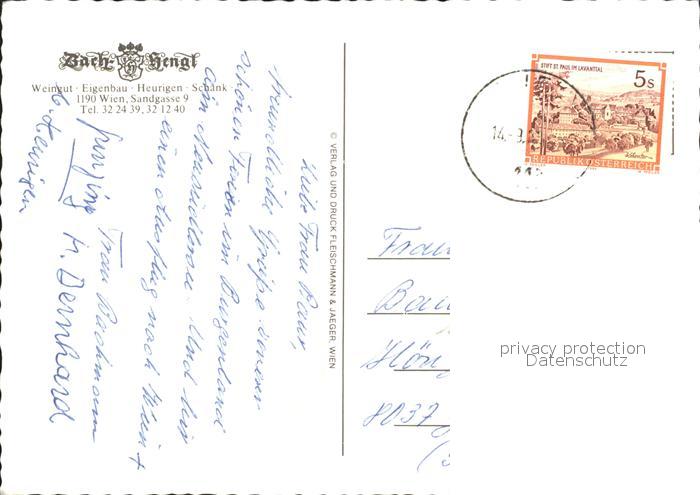 Bach-Hengl
Weingut · Eigenbau · Heurigen · Schank
1190 Wien, Sandgasse 9
Tel. 32 24 39, 32 12 40
Liebe Frau Baur,
freundliche Grüße
schönen Ferien im Burgenland
am Neusiedlersee. Und
einen Ausflug nach Wien +
Heurigen
Frau Bachmann
M. Bernhard
© VERLAG UND DRUCK FLEISCHMANN & JAEGER, WIEN
STIFT ST. PAUL IM LAVANTTAL
5s
REPUBLIK ÖSTERREICH
14.-9.
Frau
Bau
Hön
8037
privacy protection
Datenschutz